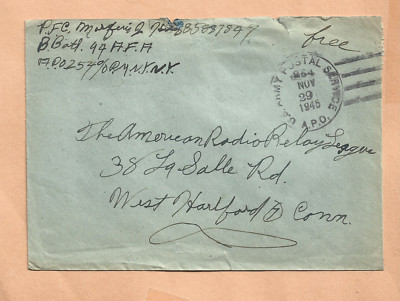 P.F.C.
free
B. Batt. 94 A.F.A
A.P.O 254 % P.M. N.Y. N.Y.
U.S. ARMY POSTAL SERVICE
254
NOV
29
1945
A.P.O.
The American Radio Relay League
38 La Salle Rd.
West Hartford Conn.